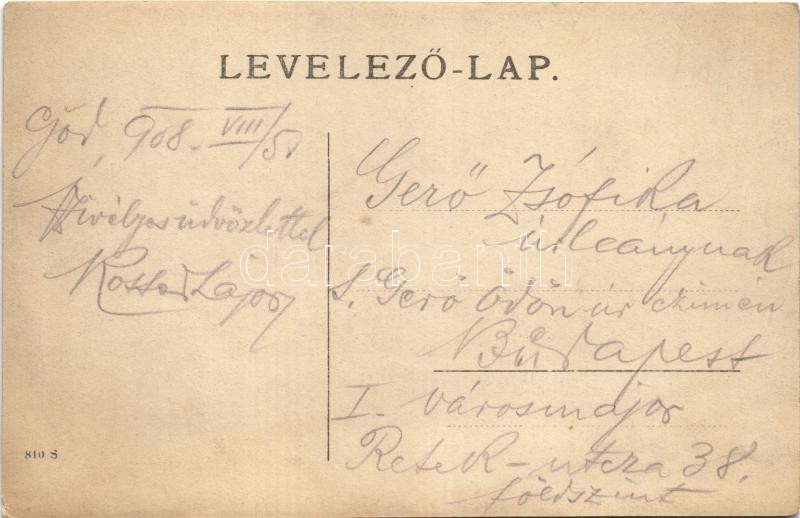 LEVELEZŐ-LAP.
Göd, 908. VIII/5.
Szívélyes üdvözlettel
Lajos
Gerő Zsófika
úrleánynak
s. Gerő Ödön úr czimén
Budapest
I. Városmajor
Retek-utcza 38.
földszint
810 S
darabanth